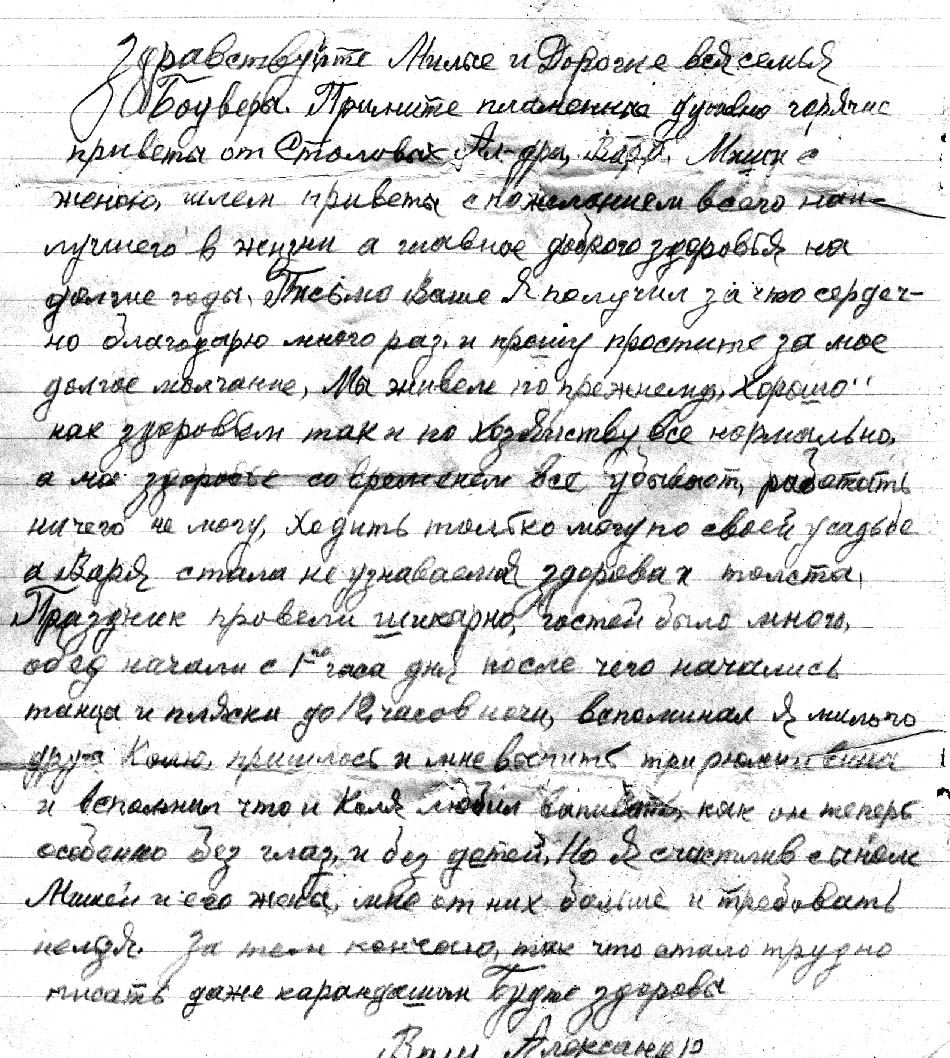 Здравствуйте Милые и Дорогие вся семья
Боуверы. Примите пламенные душевно горячие
приветы от Столовых Ал-дра, Вара, Миши с
женою, шлем приветы с пожеланием всего наи-
лучшего в жизни а главное доброго здоровья на
долгие годы. Письмо Ваше Я получил за что сердеч-
но благодарю много раз, и прошу простите за мое
долгое молчание, Мы живем по прежнему, Хорошо"
как здоровьем так и по хозяйству все нормально,
а мое здоровье со временем все убывает, работать
ничего не могу, Ходить только могу по своей усадьбе
а Варя стала не узнаваемая здорова и толста,
Праздник провели шикарно, гостей было много,
обед начали с 1го часа дня после чего начались
танцы и пляски до 12, часов ночи, вспоминал Я милого
друга Колю, пришлось и мне выпить три рюмки вина
и вспомнил что и Коля любил выпивать, как он теперь
особенно без глаз, и без детей, Но Я счастлив сыном
Мишей и его жена, мне от них больше и требовать
нельзя. За тем кончаю, так что стало трудно
писать даже карандашом Будте здоровы
Ваш Александр